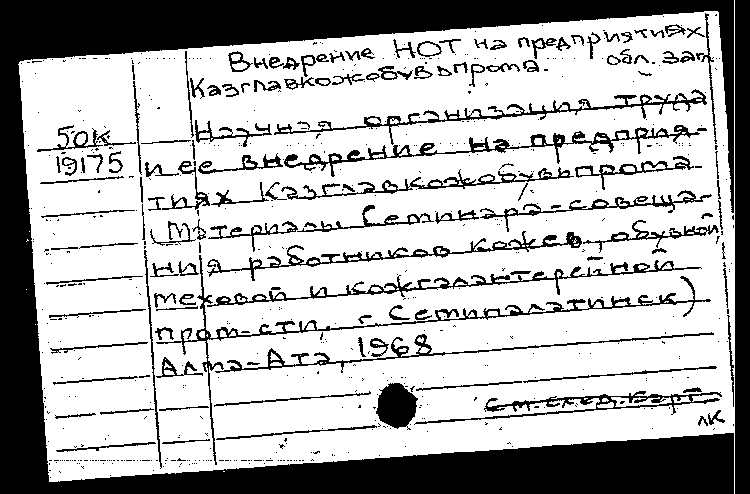 Внедрение НОТ на предприятиях
Казглавкожобувьпрома. обл. заг.
50к
19175
Научная организация труда
и ее внедрение на предприя-
тиях Казглавкожобувьпрома
(Материалы Семинара-совеща-
ния работников кожев., обувной,
меховой и кожгалантерейной
пром-сти, г. Семипалатинск)
Алма-Ата, 1968
См. след. карт.
лк